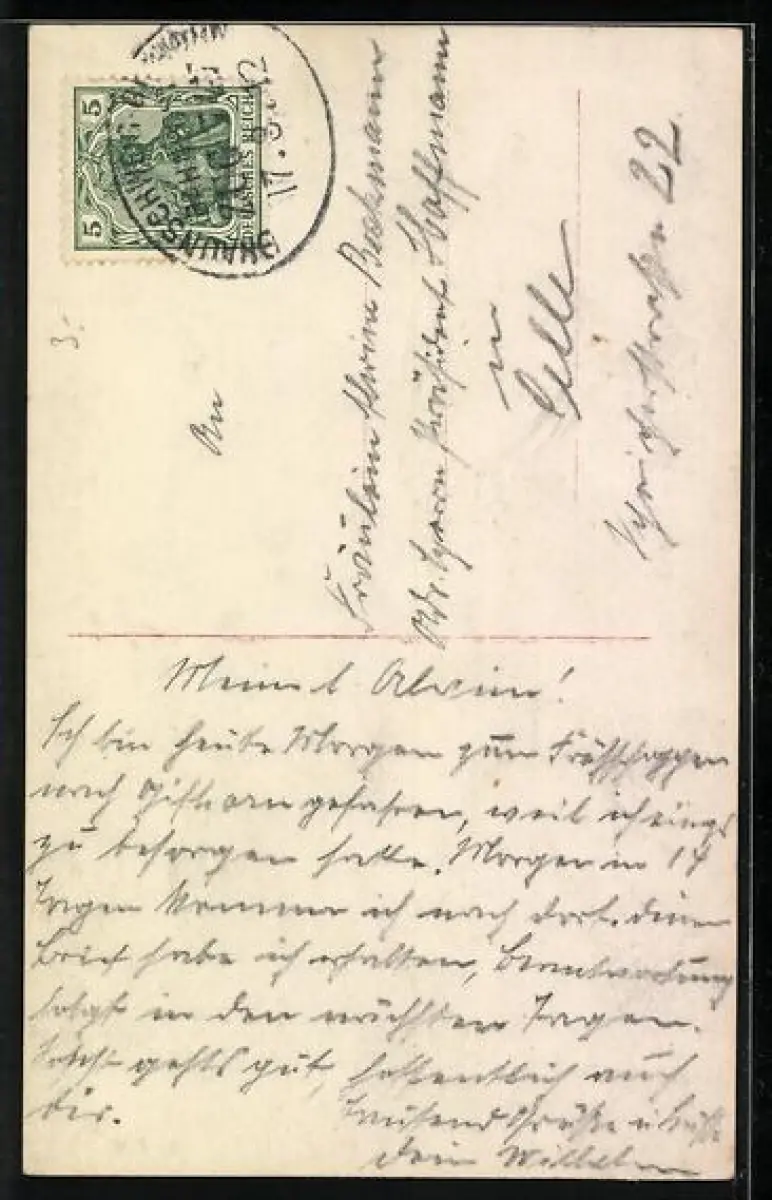 5 DEUTSCHES REICH 5
BRAUNSCHWEIG
BAHNPOST
ZUG
17.8.12
3.-
An
Fräulein Alwine Beckmann
Adr. Herrn Präsident Hoffmann
in
Celle
22.
Meine l. Alwine!
Ich bin heute Morgen zum Frühschoppen
nach Gifhorn gefahren, weil ich einiges
zu besorgen hatte. Morgen in 14
Tagen komme ich nach dort. Deinen
Brief habe ich erhalten, Beantwortung
folgt in den nächsten Tagen.
gehts gut, hoffentlich auch
dir. Tausend Grüße u Küsse
Dein Wilhelm